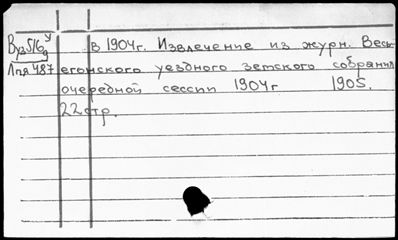 в 1904г. Извлечение из журн. Весь
Лпя 487 егонского уездного земского собрания
очередной сессии 1904г 1905.
22стр.